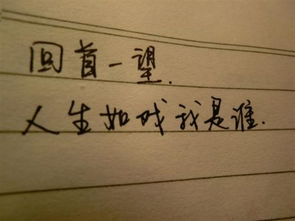 回首一望.
人生如戏我是谁.